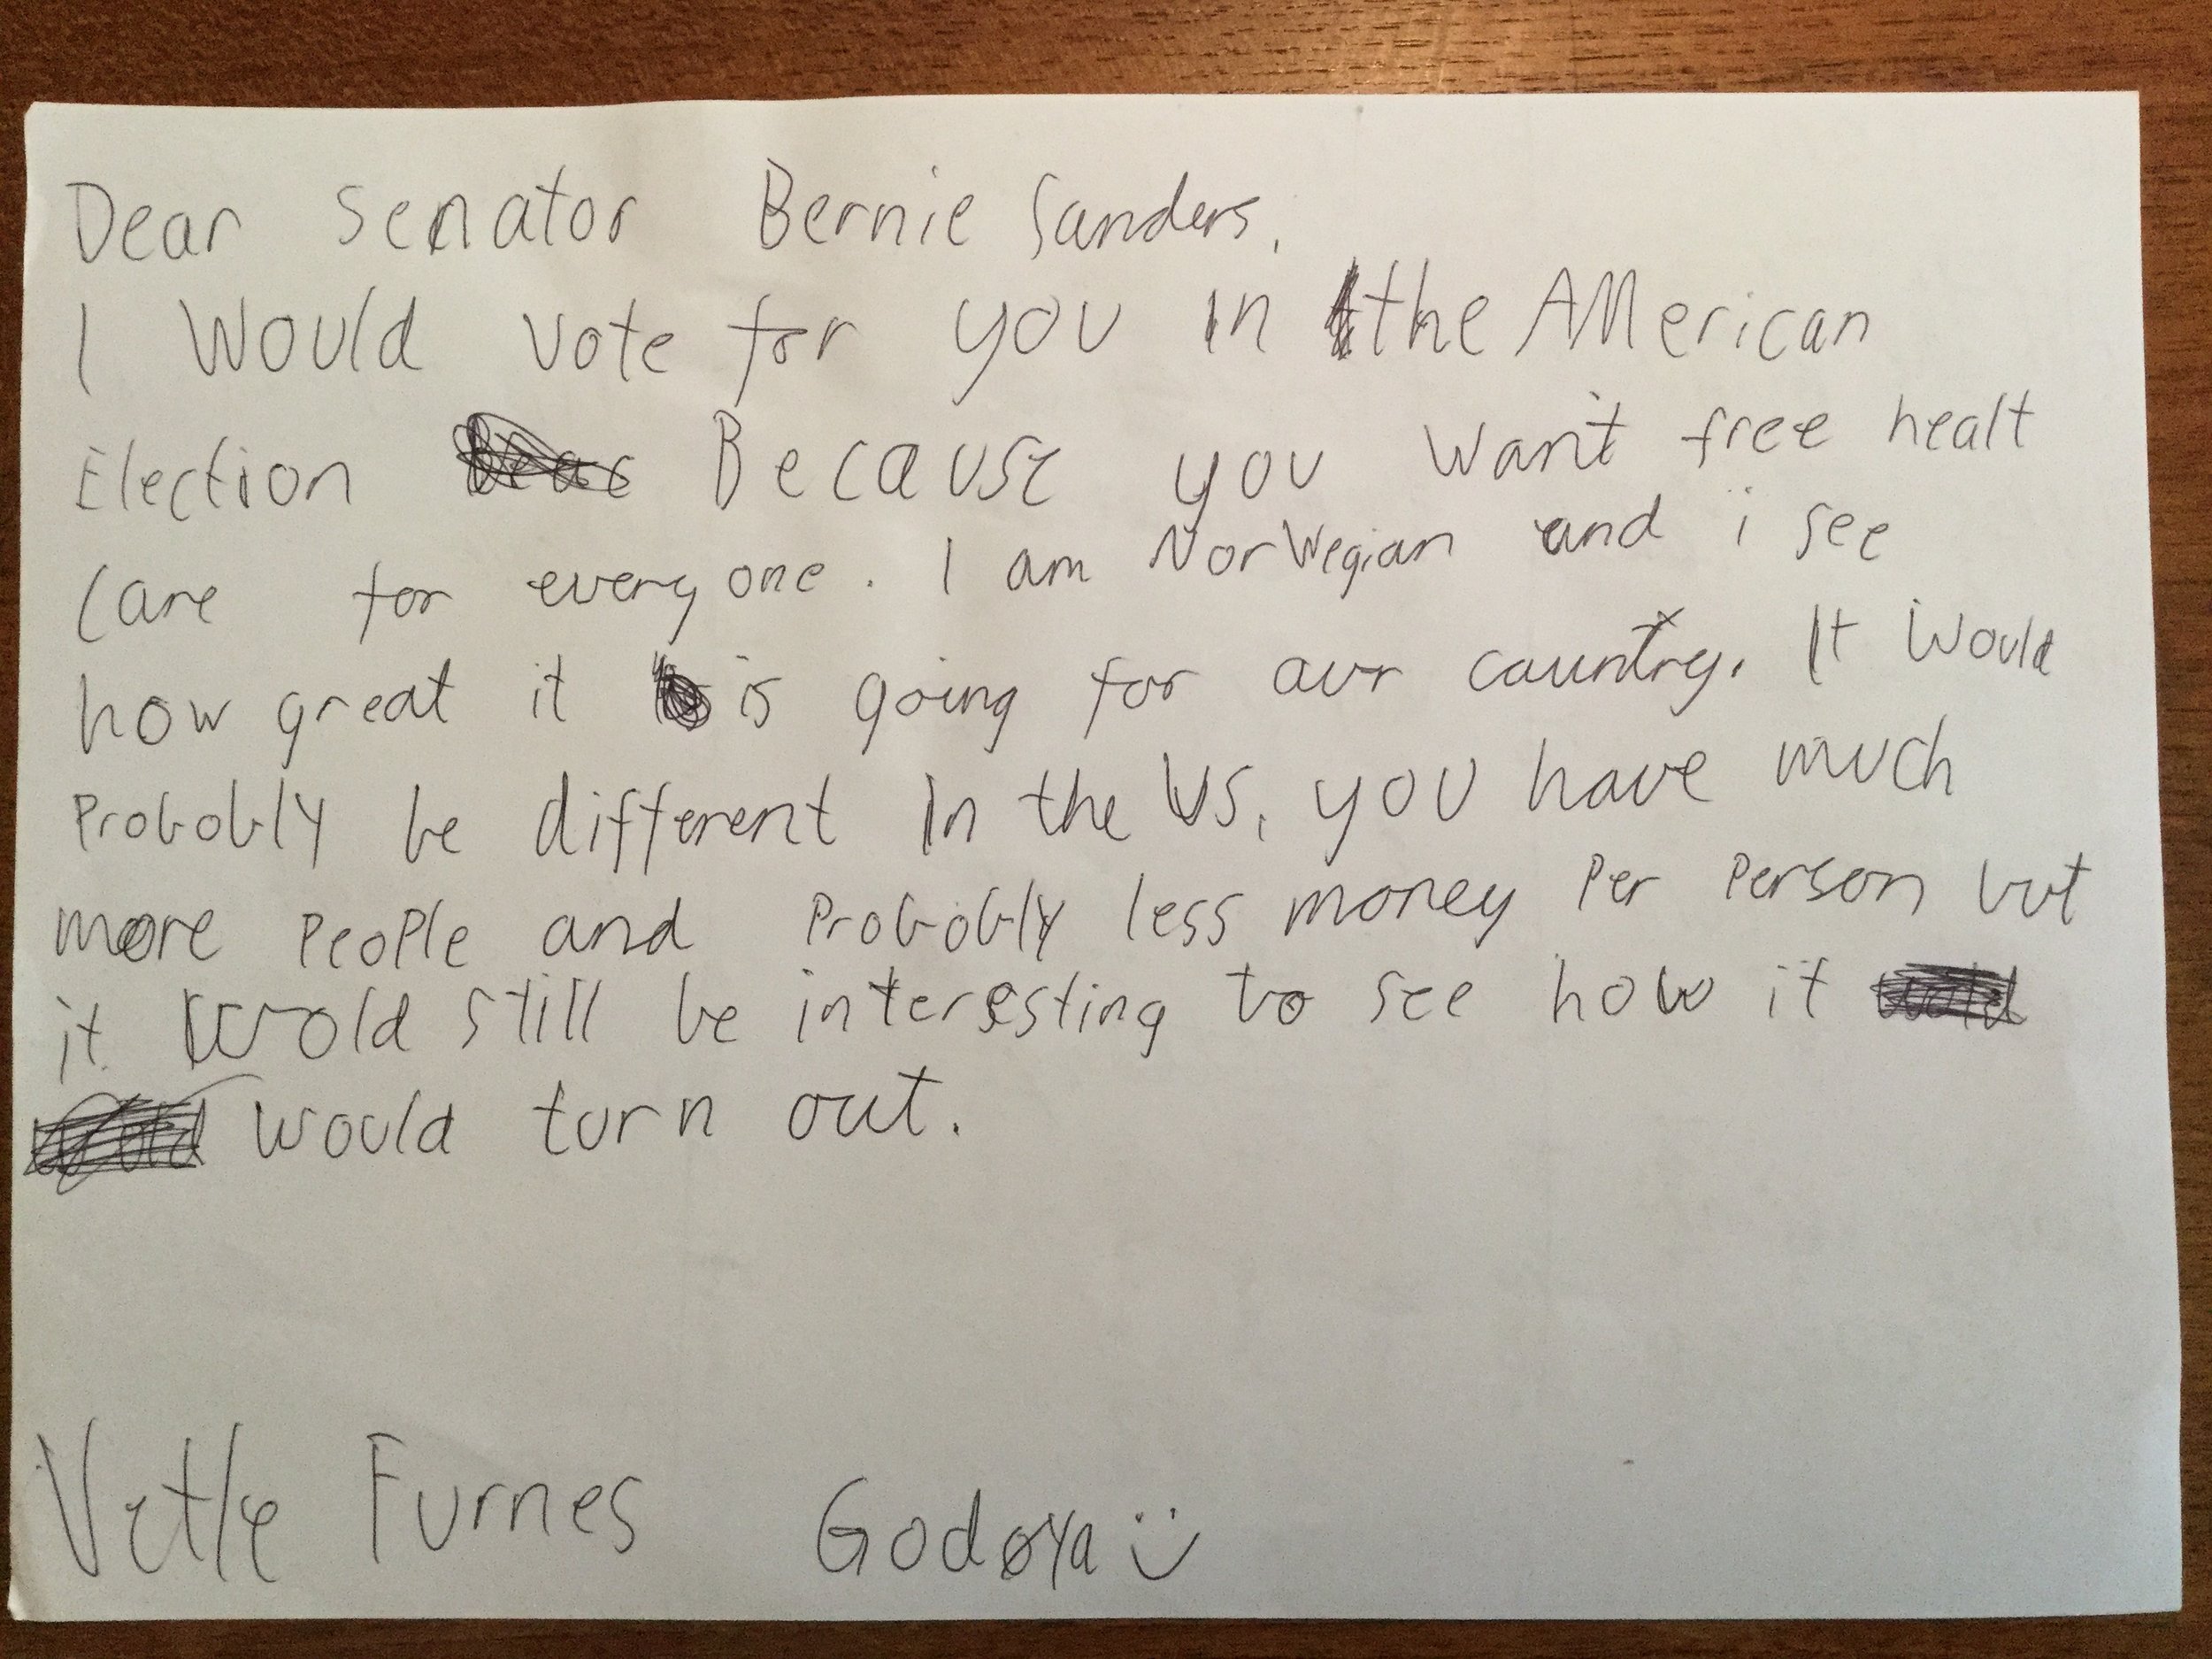 Dear Senator Bernie Sanders,
I Would vote for you in the AMerican
Election Because you want free healt
care for everyone. I am NorWegian and i see
how great it is going for our cauntry. It Would
Probobly be different In the US, you have much
more People and Probobly less money Per Person but
it Wold still be interesting to see how it
would turn out.
Vetle Furnes Godøya :)